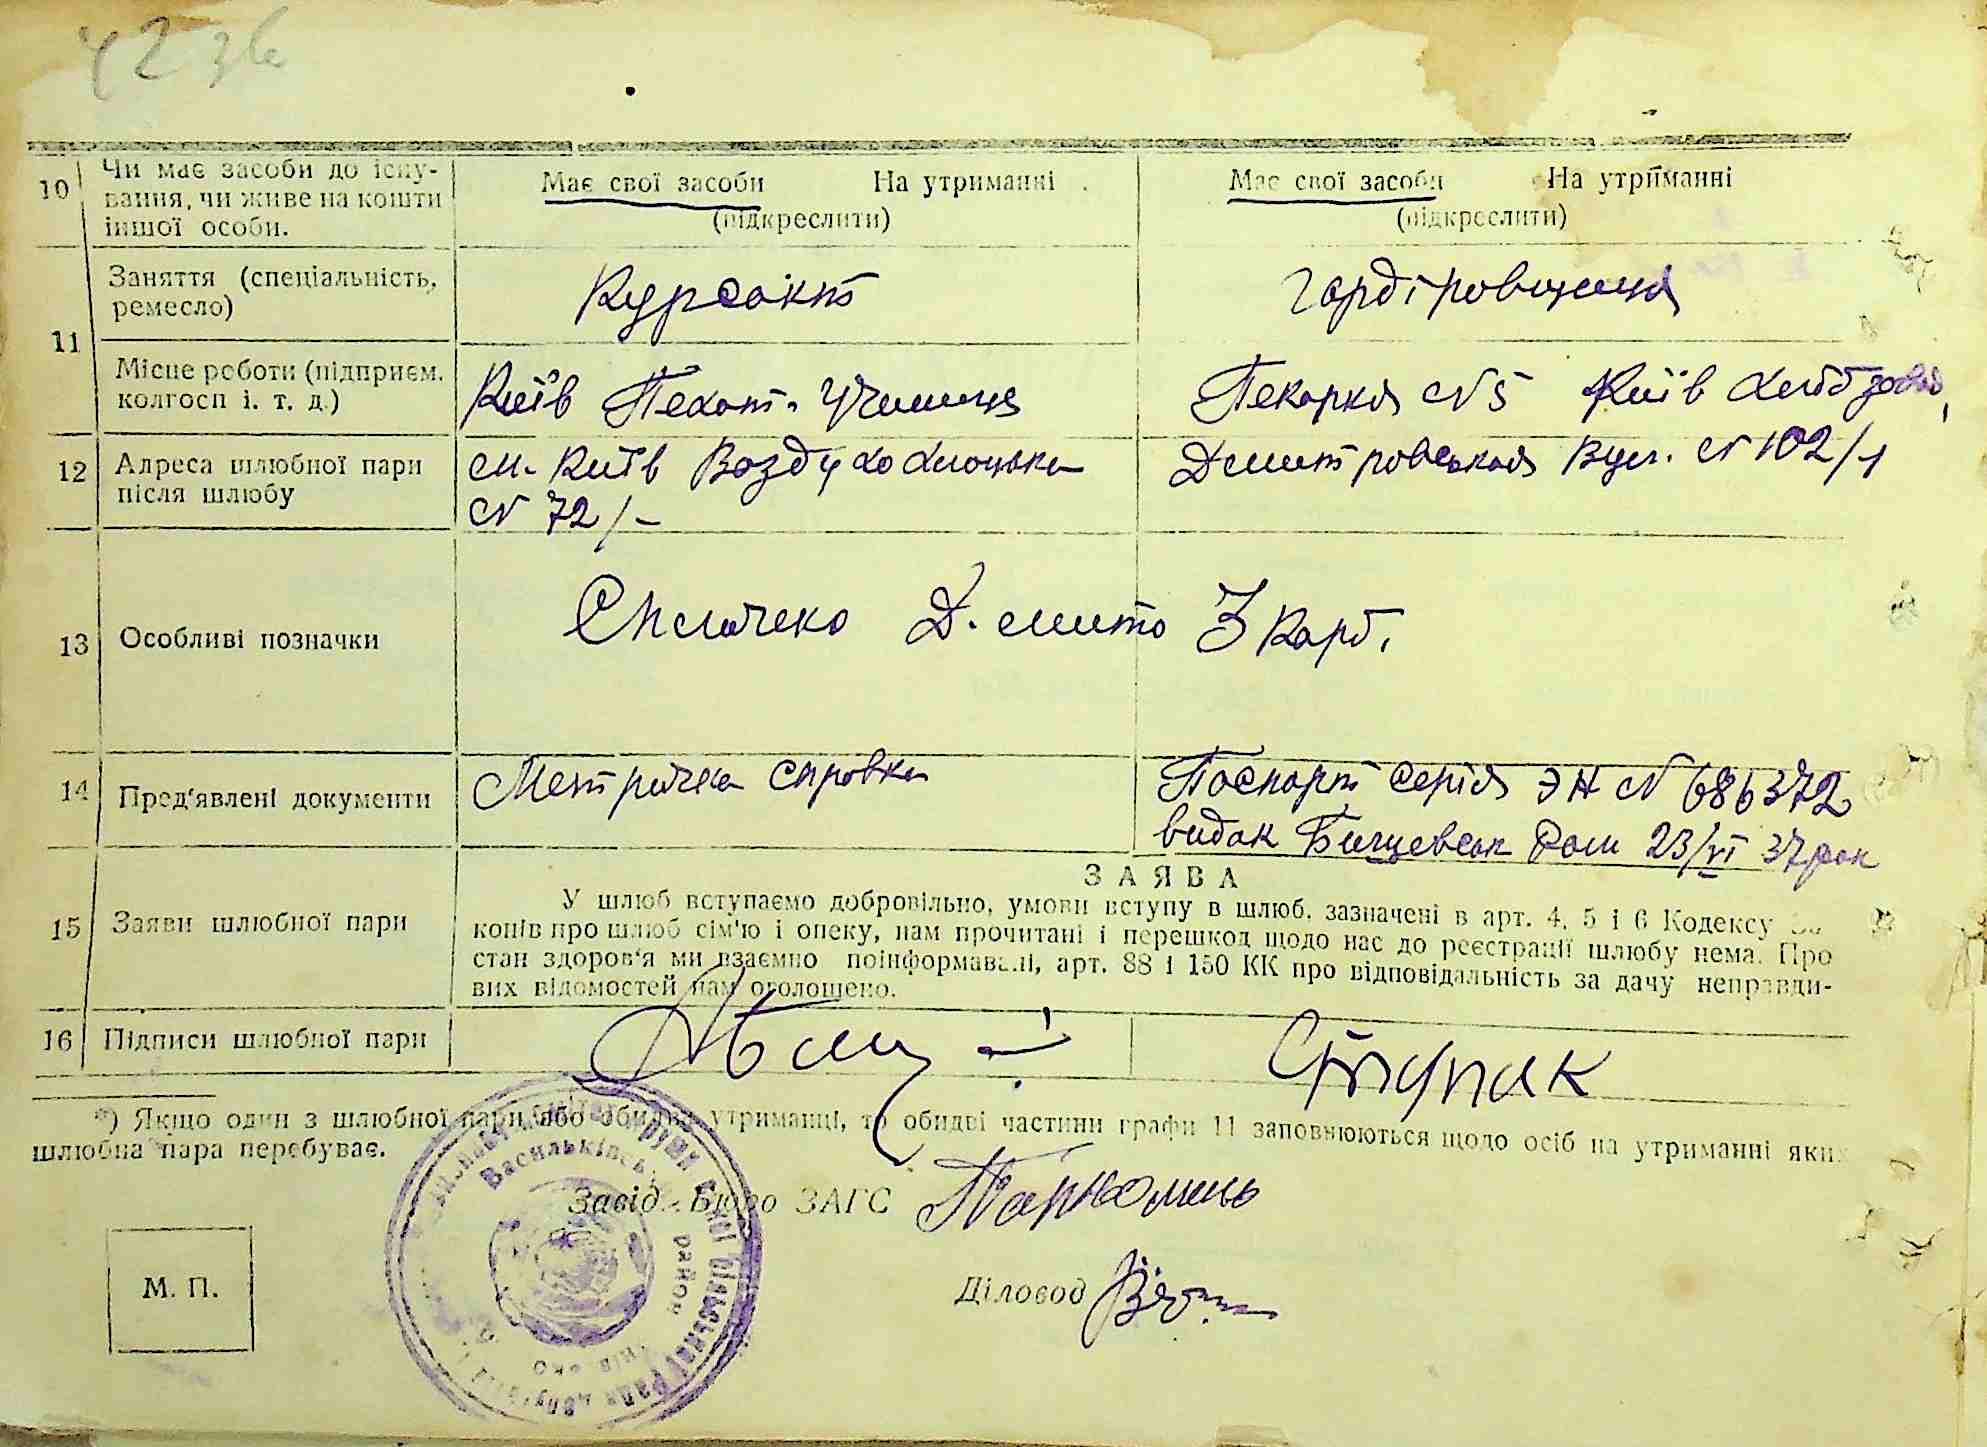 42 зв
10 Чи має засоби до існу-
вання, чи живе на кошти
іншої особи.
Має свої засоби На утриманні
(підкреслити)
Має свої засоби На утриманні
(підкреслити)
11 Заняття (спеціальність,
ремесло)
Курсант
Гардіровщиця
Місце роботи (підприєм.
колгосп і. т. д.)
Київ Пехот. Училище
Пекарня N 5 Київ
12 Адреса шлюбної пари
після шлюбу
м. Київ
N 72/-
Вул. N 102/1
13 Особливі позначки
3 Карб.
14 Пред'явлені документи
справка
Паспорт Серія ЭН N 686372
23/VI 37 рок
15 Заяви шлюбної пари
ЗАЯВА
У шлюб вступаємо добровільно, умови вступу в шлюб, зазначені в арт. 4, 5 і 6 Кодексу За-
конів про шлюб сім'ю і опеку, нам прочитані і перешкод щодо нас до реєстрації шлюбу нема. Про
стан здоров'я ми взаємно поінформавалі, арт. 88 і 150 КК про відповідальність за дачу неправди-
вих відомостей нам оголошено.
16 Підписи шлюбної пари
Ступак
*) Якщо один з шлюбної пари, або обидва утриманці, то обидві частини графи 11 заповнюються щодо осіб на утриманні яких
шлюбна пара перебуває.
Завід. Бюро ЗАГС
М. П.
Діловод
Васильківськ
район